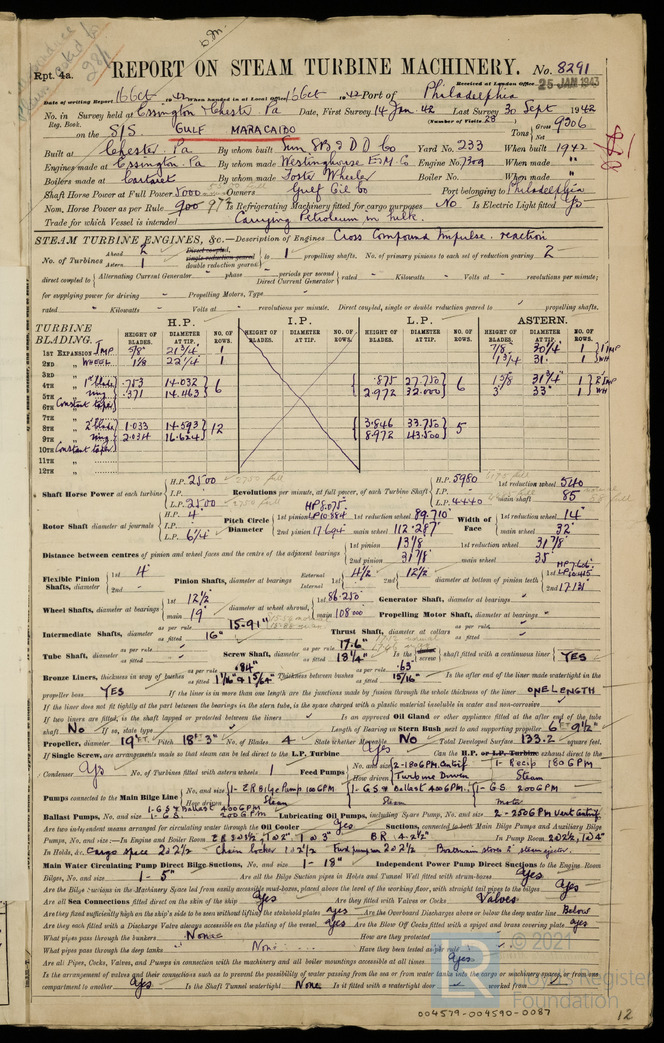 Rpt. 4a. REPORT ON STEAM TURBINE MACHINERY. No. 8291
Received at London Office 26 JAN 1943
Date of writing Report 16 Oct 1942 When handed in at Local Office 16 Oct 1942 Port of Philadelphia
No. in Survey held at Essington & Chester. Pa Date, First Survey 14 Jan. 42 Last Survey 30 Sept 1942
Reg. Book. (Number of Visits 28)
on the S/S GULF MARACAIBO Tons Gross 9306 Net
Built at Chester. Pa By whom built Sun SB & D D Co Yard No. 233 When built 1942
Engines made at Essington. Pa By whom made Westinghouse E & M Co Engine No. When made "
Boilers made at Carteret By whom made Foster Wheeler Boiler No. When made "
Shaft Horse Power at Full Power 5000 Owners Gulf Oil Co Port belonging to Philadelphia
Nom. Horse Power as per Rule 900 Is Refrigerating Machinery fitted for cargo purposes No Is Electric Light fitted Yes
Trade for which Vessel is intended Carrying Petroleum in bulk.
STEAM TURBINE ENGINES, &c.—Description of Engines Cross Compound Impulse. reaction
No. of Turbines Ahead 2 Astern 1 Direct coupled, single reduction geared double reduction geared to 1 propelling shafts. No. of primary pinions to each set of reduction gearing 2
direct coupled to Alternating Current Generator phase periods per second Direct Current Generator rated Kilowatts Volts at revolutions per minute;
for supplying power for driving Propelling Motors, Type
rated Kilowatts Volts at revolutions per minute. Direct coupled, single or double reduction geared to propelling shafts.
TURBINE BLADING. H.P. I.P. L.P. ASTERN.
HEIGHT OF BLADES. DIAMETER AT TIP. NO. OF ROWS. HEIGHT OF BLADES. DIAMETER AT TIP. NO. OF ROWS. HEIGHT OF BLADES. DIAMETER AT TIP. NO. OF ROWS. HEIGHT OF BLADES. DIAMETER AT TIP. NO. OF ROWS.
1ST EXPANSION IMP 5/8" 21 3/4" 1 7/8 30 1/4" 1 1 IMP
2ND " WHEEL 1 1/8 22 1/4 1 1 3/4 31 1 WH
3RD "
4TH " 1st blade .753 14.032 6 .875 27.750 6 1 5/8 31 3/4 1 2 IMP
5TH " ring .371 14.463 2.972 32.000 3 33" 1 WH
6TH " Constant taper
7TH "
8TH " 2 blade 1.033 14.593 12 3.846 33.750 5
9TH " ring 2.034 16.624 8.972 43.500
10TH " Constant taper
11TH "
12TH "
Shaft Horse Power at each turbine H.P. 2500 I.P. L.P. 2500 Revolutions per minute, at full power, of each Turbine Shaft H.P. 5980 I.P. L.P. 4440 1st reduction wheel 540 main shaft 85
Rotor Shaft diameter at journals H.P. 4" I.P. L.P. 6 1/4" Pitch Circle Diameter 1st pinion HP 8.075 LP 10.884 1st reduction wheel 89.710" 2nd pinion 17.694 main wheel 112.287" Width of Face 1st reduction wheel 14" main wheel 32"
Distance between centres of pinion and wheel faces and the centre of the adjacent bearings 1st pinion 13 7/8 2nd pinion 31 7/8 1st reduction wheel 31 7/8 main wheel 35
Flexible Pinion Shafts, diameter 1st 4" 2nd Pinion Shafts, diameter at bearings External 1st 4 1/2 Internal 2nd 12 1/2 diameter at bottom of pinion teeth 1st HP 7.606 LP 10.415 2nd 17.131
Wheel Shafts, diameter at bearings 1st 12 1/2 main 19" diameter at wheel shroud, 1st 86.250 main 108.000 Generator Shaft, diameter at bearings Propelling Motor Shaft, diameter at bearings
Intermediate Shafts, diameter as per rule 15.91" as fitted 16" Thrust Shaft, diameter at collars as per rule as fitted
Tube Shaft, diameter as per rule as fitted Screw Shaft, diameter as per rule 17.6" as fitted 18 1/4" Is the screw shaft fitted with a continuous liner YES
Bronze Liners, thickness in way of bushes as per rule .84" as fitted 1 1/16" & 1 5/64 Thickness between bushes as per rule .63 as fitted 15/16" Is the after end of the liner made watertight in the
propeller boss YES If the liner is in more than one length are the junctions made by fusion through the whole thickness of the liner ONE LENGTH
If the liner does not fit tightly at the part between the bearings in the stern tube, is the space charged with a plastic material insoluble in water and non-corrosive
If two liners are fitted, is the shaft lapped or protected between the liners Is an approved Oil Gland or other appliance fitted at the after end of the tube
shaft No If so, state type Length of Bearing in Stern Bush next to and supporting propeller 6 FT 9 1/2"
Propeller, diameter 19 FT. Pitch 18 FT 3" No. of Blades 4 State whether Moveable No Total Developed Surface 133.2 square feet.
If Single Screw, are arrangements made so that steam can be led direct to the L.P. Turbine Yes Can the H.P. or L.P. Turbine exhaust direct to the
Condenser Yes No. of Turbines fitted with astern wheels 1 Feed Pumps No. and size 2-180 GPM. Centrif 1- Recip 180 GPM How driven Turbine Driven Steam
Pumps connected to the Main Bilge Line No. and size 1- E R Bilge Pump 100 GPM 1- G S & Ballast 400 GPM. 1- G S 200 GPM How driven Steam Steam motor
Ballast Pumps, No. and size 1- G S & Ballast 400 GPM 1- G S. 200 GPM Lubricating Oil Pumps, including Spare Pump, No. and size 2 - 250 GPM Vert Centrif.
Are two independent means arranged for circulating water through the Oil Cooler Yes Suctions, connected to both Main Bilge Pumps and Auxiliary Bilge
Pumps, No. and size:—In Engine and Boiler Room B R. 4-2 1/2" In Pump Room 2 @ 2 1/2, 1 @ 4"
In Holds, &c. Cargo space 2 @ 2 1/2 Chain locker 1 @ 2 1/2 Fwd pump rm 2 @ 2 1/2 Boatswain stores 2" steam ejector.
Main Water Circulating Pump Direct Bilge Suctions, No. and size 1- 18" Independent Power Pump Direct Suctions to the Engine Room
Bilges, No. and size 1 - 5" Are all the Bilge Suction pipes in Holds and Tunnel Well fitted with strum-boxes Yes
Are the Bilge Suctions in the Machinery Space led from easily accessible mud-boxes, placed above the level of the working floor, with straight tail pipes to the bilges Yes
Are all Sea Connections fitted direct on the skin of the ship Yes Are they fitted with Valves or Cocks Valves
Are they fixed sufficiently high on the ship's side to be seen without lifting the stokehold plates Yes Are the Overboard Discharges above or below the deep water line Below
Are they each fitted with a Discharge Valve always accessible on the plating of the vessel Yes Are the Blow Off Cocks fitted with a spigot and brass covering plate Yes
What pipes pass through the bunkers None How are they protected
What pipes pass through the deep tanks None Have they been tested as per rule
Are all Pipes, Cocks, Valves, and Pumps in connection with the machinery and all boiler mountings accessible at all times Yes.
Is the arrangement of valves and their connections such as to prevent the possibility of water passing from the sea or from water tanks into the cargo or machinery spaces, or from one
compartment to another Yes Is the Shaft Tunnel watertight None Is it fitted with a watertight door worked from
© 2021
Lloyd's Register
Foundation
004579-004590-0087
12